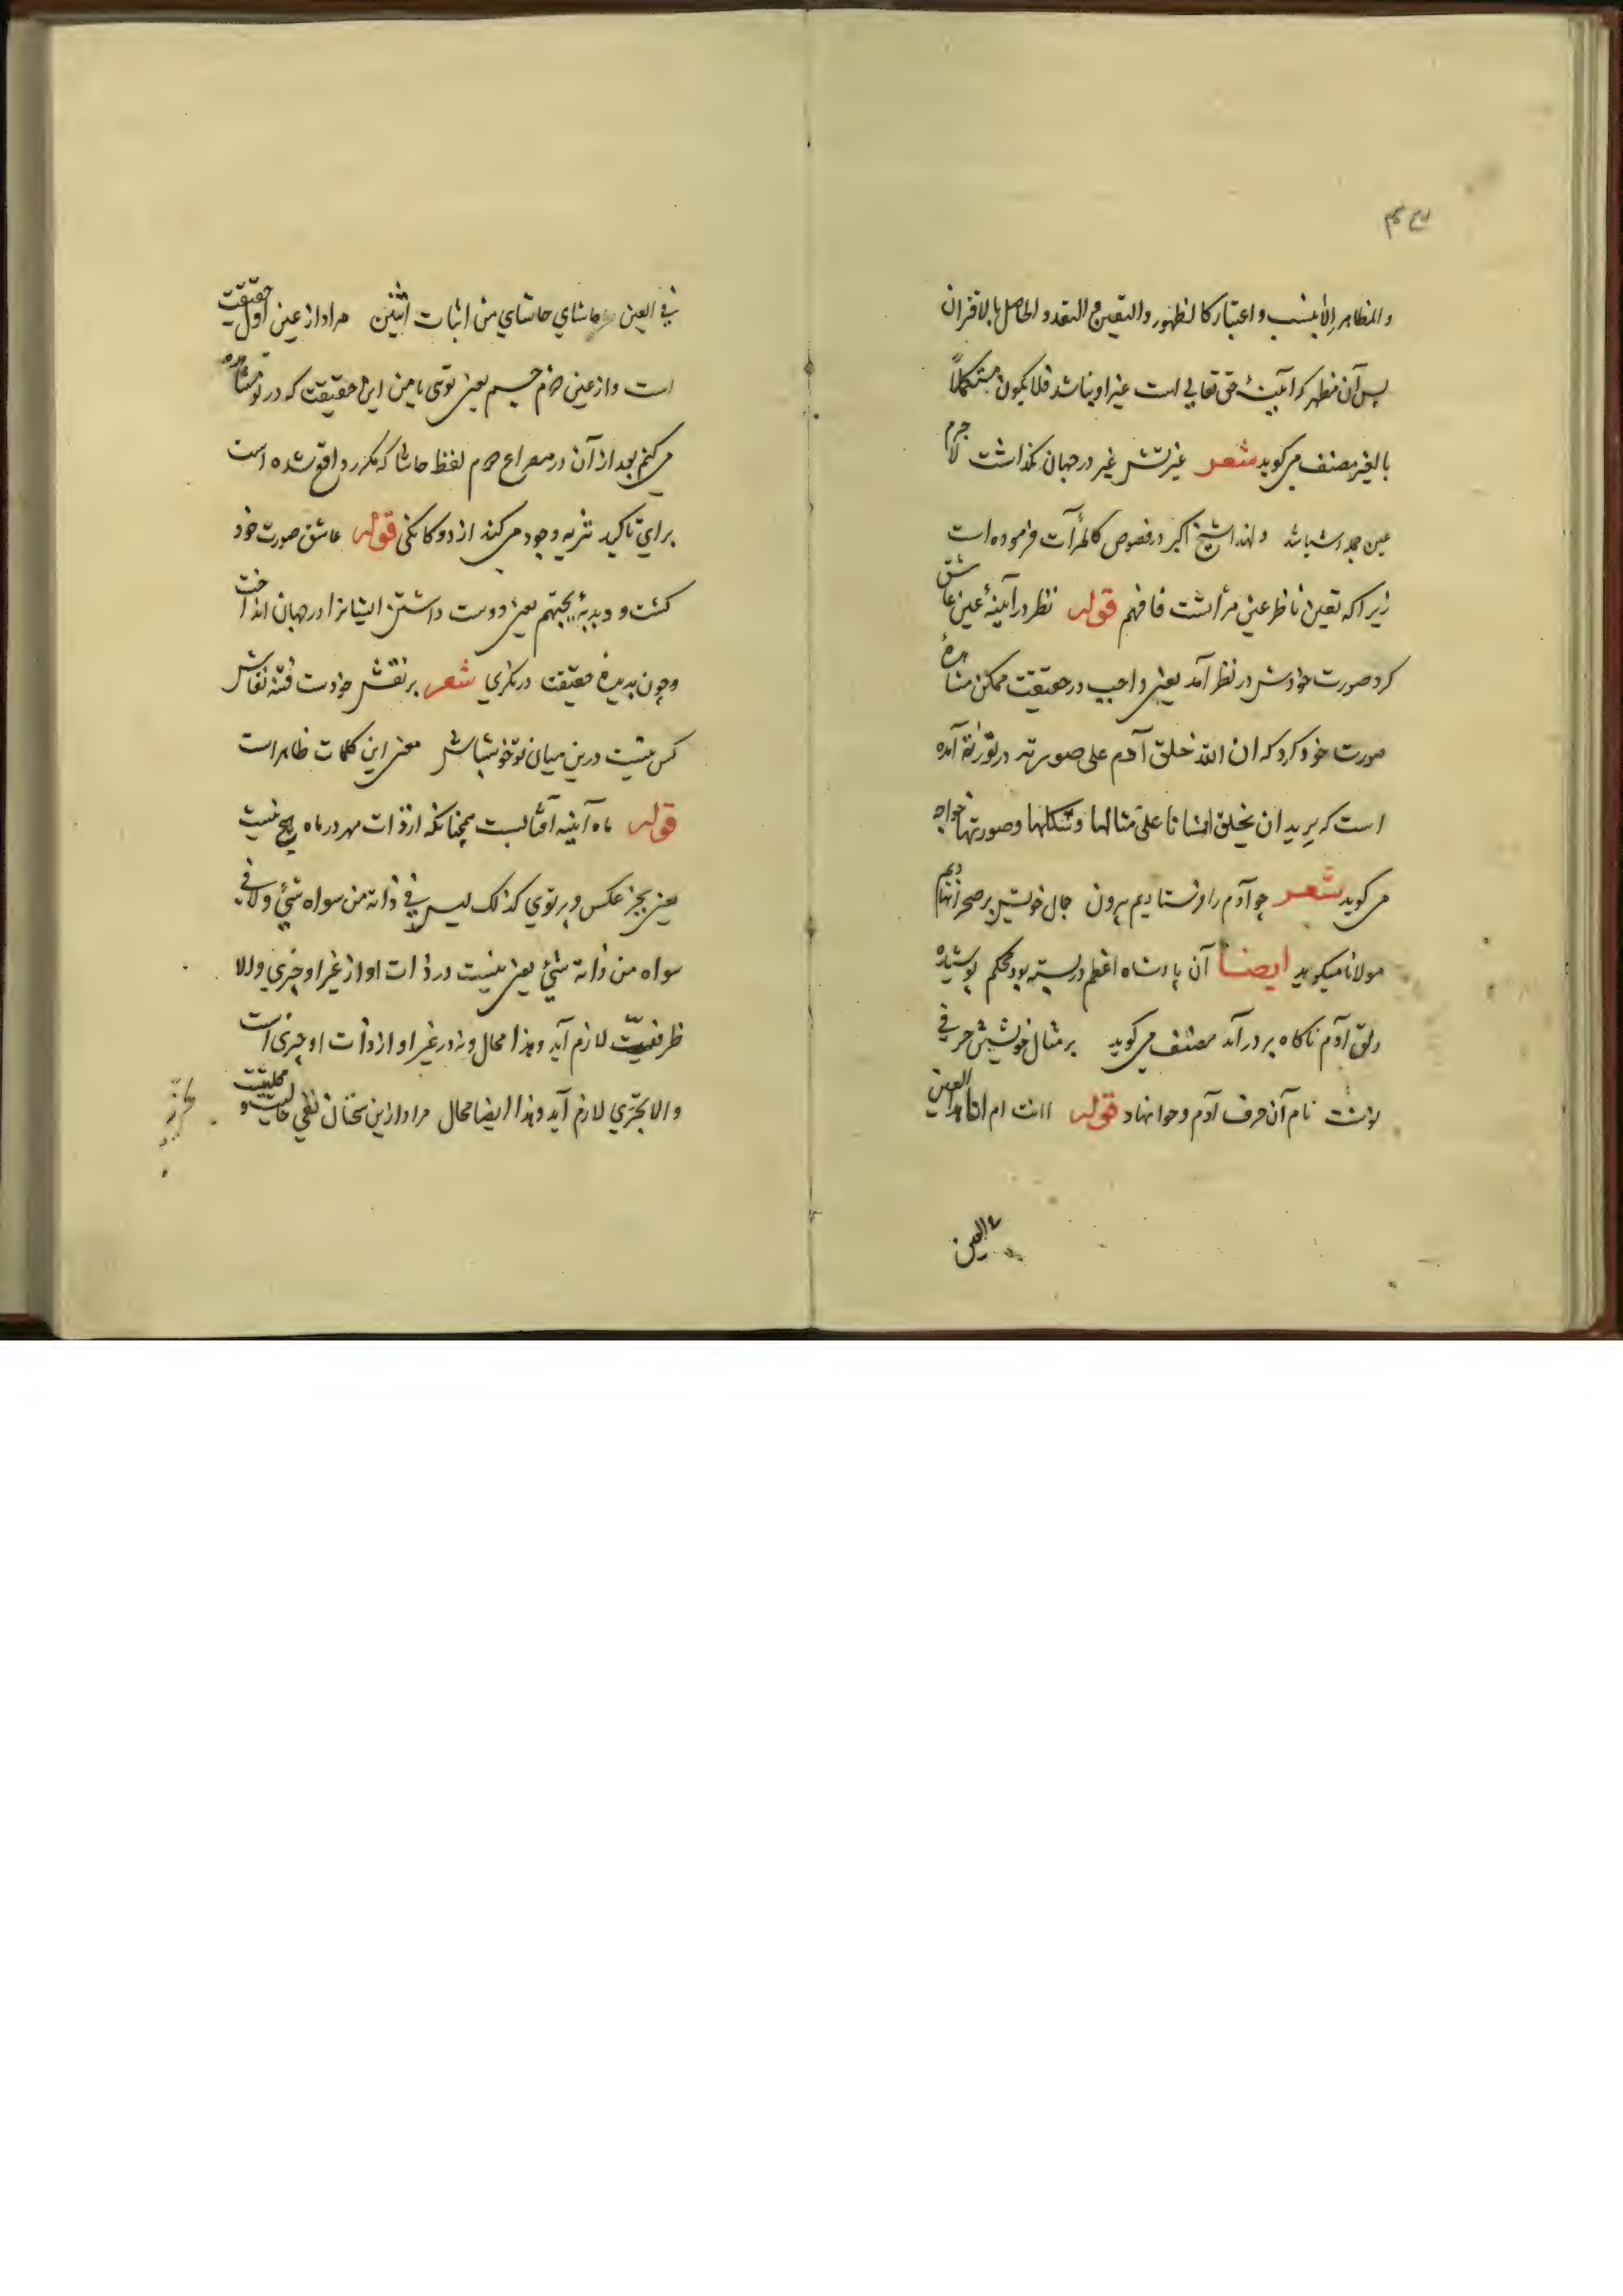 والمظاهر الا بنسب و اعتبار كالظهور والتعين و التعدد الحاصل بالاقتران
پس آن مظهر كه آيينهٔ حق تعالي است غير او نباشد فلا يكون مستكملاً
بالغير مصنف مي كويد شعر غيرتش غير در جهان نكذاشت لا جرم
عين جمله اشيا شد ولهذا شيخ اكبر در فصوص كالمرآت فرموده است
زيرا كه تعين ناظر عين مرأتست فافهم قوله نظر در آيينهٔ عين عاشق
كرد صورت خودش در نظر آمد يعني واجب در حقيقت ممكن مشاهدهٔ
صورت خود كرد كه ان الله خلق آدم علي صورته در تورية آمده
است كه يريد ان يخلق انسانا علي مثالها وشكلها وصورتها خواجه
مي كويد شعر چو آدم را فرستاديم بيرون جمال خويش بر صحرا نهاديم
مولانا ميكويد ايضاً آن پادشاه اعظم در بسته بود محكم پوشيده
دلق آدم ناكاه بر در آمد مصنف مي كويد بر مثال خويشتن حرفي
نوشت نام آن حرف آدم و حوا نهاد قوله اانت ام انا هذا العين
في العين
في العين حاشاي حاشاي من اثبات اثنين مراد از عين اول حقيقت
است واز عين دوم جسم يعني توئي يا من اين حقيقت كه در تو مشاهده
مي كنم بعد از آن در مصراع دوم لفظ حاشا كه مكرر واقع شده است
براي تاكيد تنزيه وجود مي كند از دوكانكي قوله عاشق صورت خود
كشت و دبدبهٔ يحبهم يعني دوست داشتن ايشانرا در جهان انداخت
و چون بديدهٔ حقيقت در نكري شعر بر نقش خودست فتنه نقاش
كس نيست درين ميان تو خوش باش معني اين كلمات ظاهر است
قوله ماه آيينه آفتابست همچنانكه از ذات مهر در ماه هيچ نيست
يعني بجز عكس و پرتوي كذلك ليس في ذاته من سواه شئ ولا في
سواه من ذاته شئ يعني نيست در ذات او از غير او چيزي والا
ظرفيت لازم آيد وهذا محال و نه در غير او از ذات او چيزي است
والا تجزي لازم آيد وهذا ايضا محال مراد ازين سخنان نفي حاليت و محليت